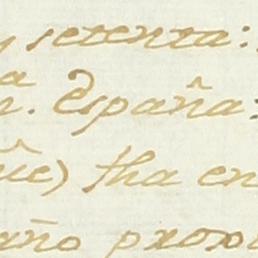 y setenta:
a
n. España:
ue) fha en
año proxi